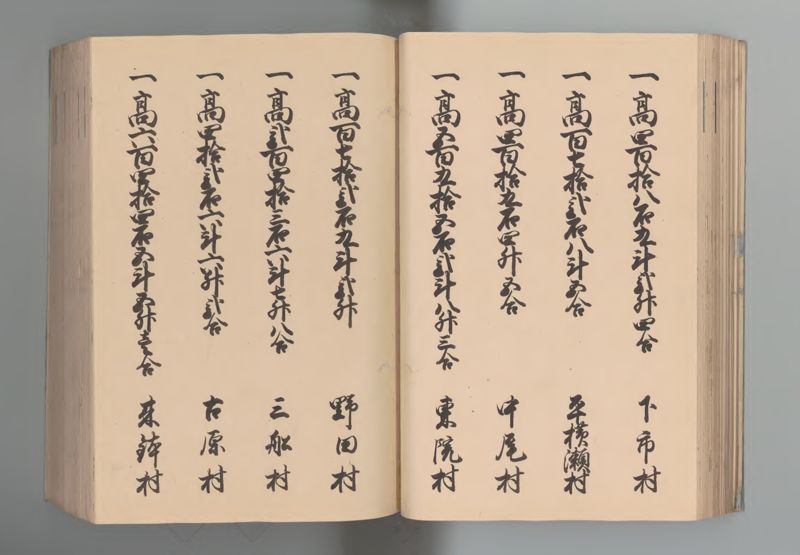 一高四百拾八石九斗弐升四合 下市村
一高百七拾弐石八斗五合 平横瀬村
一高四百拾九石四升五合 中尾村
一高五百九拾五石弐斗八升三合 東院村
一高百七拾弐石九斗弐升 野田村
一高弐百四拾三石六斗七升八合 三舩村
一高四拾弐石六斗六升弐合 古原村
一高六百四拾四石五斗五升壱合 来鉢村